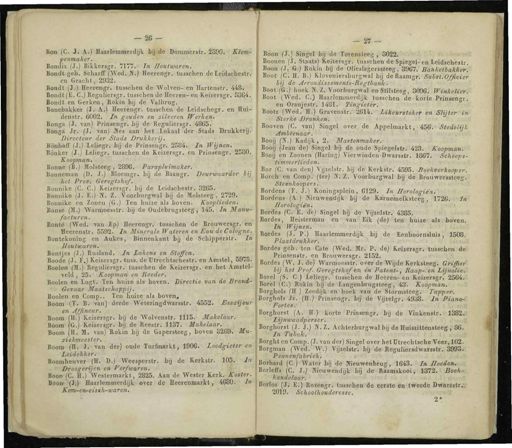 — 26 —
Bon (C. J. A.) Haarlemmerdijk bij de Dommerstr. 2396. Klompenmaker.
Bondix (J.) Bikkersgr. 7177. In Houtwaren.
Bondt geb. Scharff (Wed. N.) Heerengr. tusschen de Leidschestr.
en Gracht, 2932.
Bondt (J.) Heerengr. tusschen de Wolven- en Hartenstr. 448.
Bondt en Gerken, Rokin bij de Vallbrug.
Bonebakker (J. A.) Heerengr. tusschen de Leidschegr. en Huidenstr.
In gouden en zilveren Werken.
Bonga (J. van) Prinsengr. bij de Runstr.
Bonga Jr. (J. van) Nes aan het Lokaal der Stads Drukkerij.
Directeur der Stads Drukkerij.
Bönhoff (J.) Leliegr. bij de Prinsengr. 2584. In Wijnen.
Bönker (J.) Leliegr. tusschen de Keizersgr. en Prinsengr. 2580.
Koopman.
Bonne (B.) Molsteeg, 2896. Parapluimaker.
Bonneman (D. J.) Bloemgr. bij de Baangr. Deurwaarder bij
het Prov. Geregtshof.
Bonnike (C. C.) Keizersgr. bij de Leidschestr. 3265.
Bonnike (J. E.) N. Z. Voorburgwal bij de Molsteeg, 2729.
Bonnike en Zonen (G.) Ten huize als boven. Kooplieden.
Bonse (M.) Warmoesstr. bij de Oudebrugsteeg, 145. In Manufacturen.
Bonté (Wed. van Ep) Heerengr. tusschen de Brouwersgr. en
Heerenstr. 5592. In Minerale Wateren en Eau de Cologne.
Buntekoning en Aukes, Binnenkant bij de Schipperstr. In
Houtwaren.
Bontjes (J.) Rusland. In Lakens en Stoffen.
Boode (J. F.) Keizersgr. tusschen de Utrechtschestr. en Amstel, 5978.
Boelen (M.) Regulieregr. tusschen de Keizersgr. en het Amstelveld,
25. Koopman en Reeder.
Boelen en Lugt. Ten huize als boven. Directie van de Brand-
Boelen en Comp. Ten huize als boven.
Boom (T. B. van) derde Weteringdwarsstr. 4552. Essaijeur
en Affineur.
Boom (H.) Keizersgr. bij de Wolvenstr. 1115. Makelaar.
Boom (G.) Keizersgr. bij de Reestr. 1107. Makelaar.
Boom (R. M. van) Rokin bij de Gapersteeg, boven 3269. Muziekmeester.
Boom (B. J. van der) oude Turfmarkt, 1906. Loodgieter en
Leidekker.
Boomheuver (H. D.) Weesperstr. bij de Kerkstr. 105. In
Droogerijen en Verfwaren.
Boon (C. H.) Westermarkt, 2825. Aan de Wester Kerk. Koster.
Boon (J.) Haarlemmerdijk over de Heerenmarkt, 4680. In
Kom-en-eisch-waren.
— 27 —
Boon (J.) Singel bij de Torensteeg, 3022.
Boonen (J. Staats) Keizersgr. tusschen de Spiegel- en Leidschestr.
Boon (J. G.) Rokin bij de Olieslagerssteeg, 3967. Banketbakker.
Boot (C. H. B.) Kloveniersburgwal bij de Raamgr. Subst. Officier
bij de Arrondissements-Regtbank.
Boot (G.) hoek N. Z. Voorburgwal en Stilsteeg, 3096. Winkelier.
Boot (Wed. C.) Haarlemmerdijk tusschen de korte Prinsengr.
en Oranjestr. 1431. Tingieter.
Boots (Wed. H.) Gravenstr. 2614. Likeurstoker en Slijter in
Sterke Dranken.
Booven (C. van) Singel over de Appelmarkt, 456. Stedelijk
Ambtenaar.
Booij (N.) Kadijk, 2. Mastenmaker.
Booij (Jean de) Singel bij de oude Spiegelstr. 423. Koopman.
Booij en Zoonen (Haring) Vierwinden Dwarsstr. 1867. Scheepstimmerlieden.
Bor (C. van den) Vijzelstr. bij de Kerkstr. 4595. Paardenkooper.
Borch en Comp. (ter) N. Z. Voorburgwal bij de Brouwerssteeg.
Steenkoopers.
Bordens (T. J.) Koningsplein, 6129. In Horologiën.
Bordens (A.) Nieuwendijk bij de Karnemelksteeg, 1726. In
Horologiën.
Bordes (C. E. de) Singel bij de Vijzelstr. 4385.
Bordes, Heinterman en van Eik (de) ten huize als boven.
In Wijnen.
Bordes (J. P.) Haarlemmerdijk bij de Eenhoornsluis, 1508.
Plaatdrukker.
Bordes geb. ten Cate (Wed. Mr. P. de) Keizersgr. tusschen de
Prinsenstr. en Brouwersgr. 2152.
Bordes (W. J. de) Warmoesstr. over de Wijde Kerksteeg. Griffier
bij het Prof. Geregtshof en de Patent-, Raap- en Lijnolie.
Borel (S. C.) Leliegr. tusschen de Heeren- en Keizersgr. 2564.
Borel (C.) Rokin bij de Langenbrugsteeg, 43. Koopman.
Borghols (H.) Zeedijk en hoek van de Stormsteeg. Tapper.
Borghols Jr. (H.) Prinsengr. bij de Vijzelgr. 4938. In Piano-
Fortes.
Borghorst (A. H.) korte Prinsengr. bij de Vinkenstr. 1382.
Lijnwaadsperser.
Borghorst (J. J.) N. Z. Achterburgwal bij de Huiszittensteeg, 36.
In Tabak.
Borght en Comp. (J. van der) Singel over het Utrechtsche Veer, 102.
Borgman (Wed. W.) Vijzelstr. bij de Reguliersdwarsstr. 3993.
Pannenfabriek.
Borhard (C.) Water bij de Nieuwebrug, 1643. In Hoeden.
Borleffs (C. J.) Nieuwendijk bij de Raamskooi, 1372. Boekhandelaar.
Borlos (J. E.) Rozengr. tusschen de eerste en tweede Dwarsstr.
2019. Schoolhouderesse.
2*